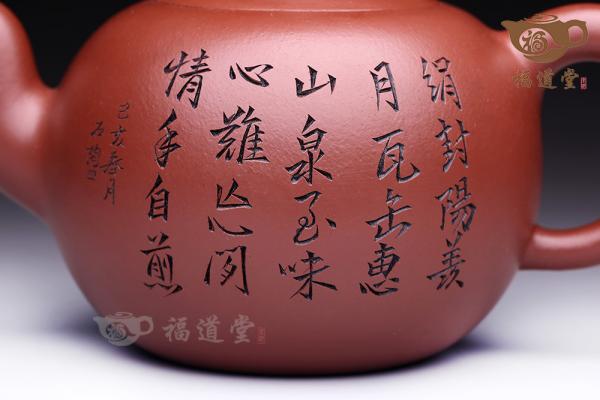 福道堂
絹封陽羨
月瓦缶惠
山泉至味
心難忘閑
情手自煎
己亥春月
福道堂